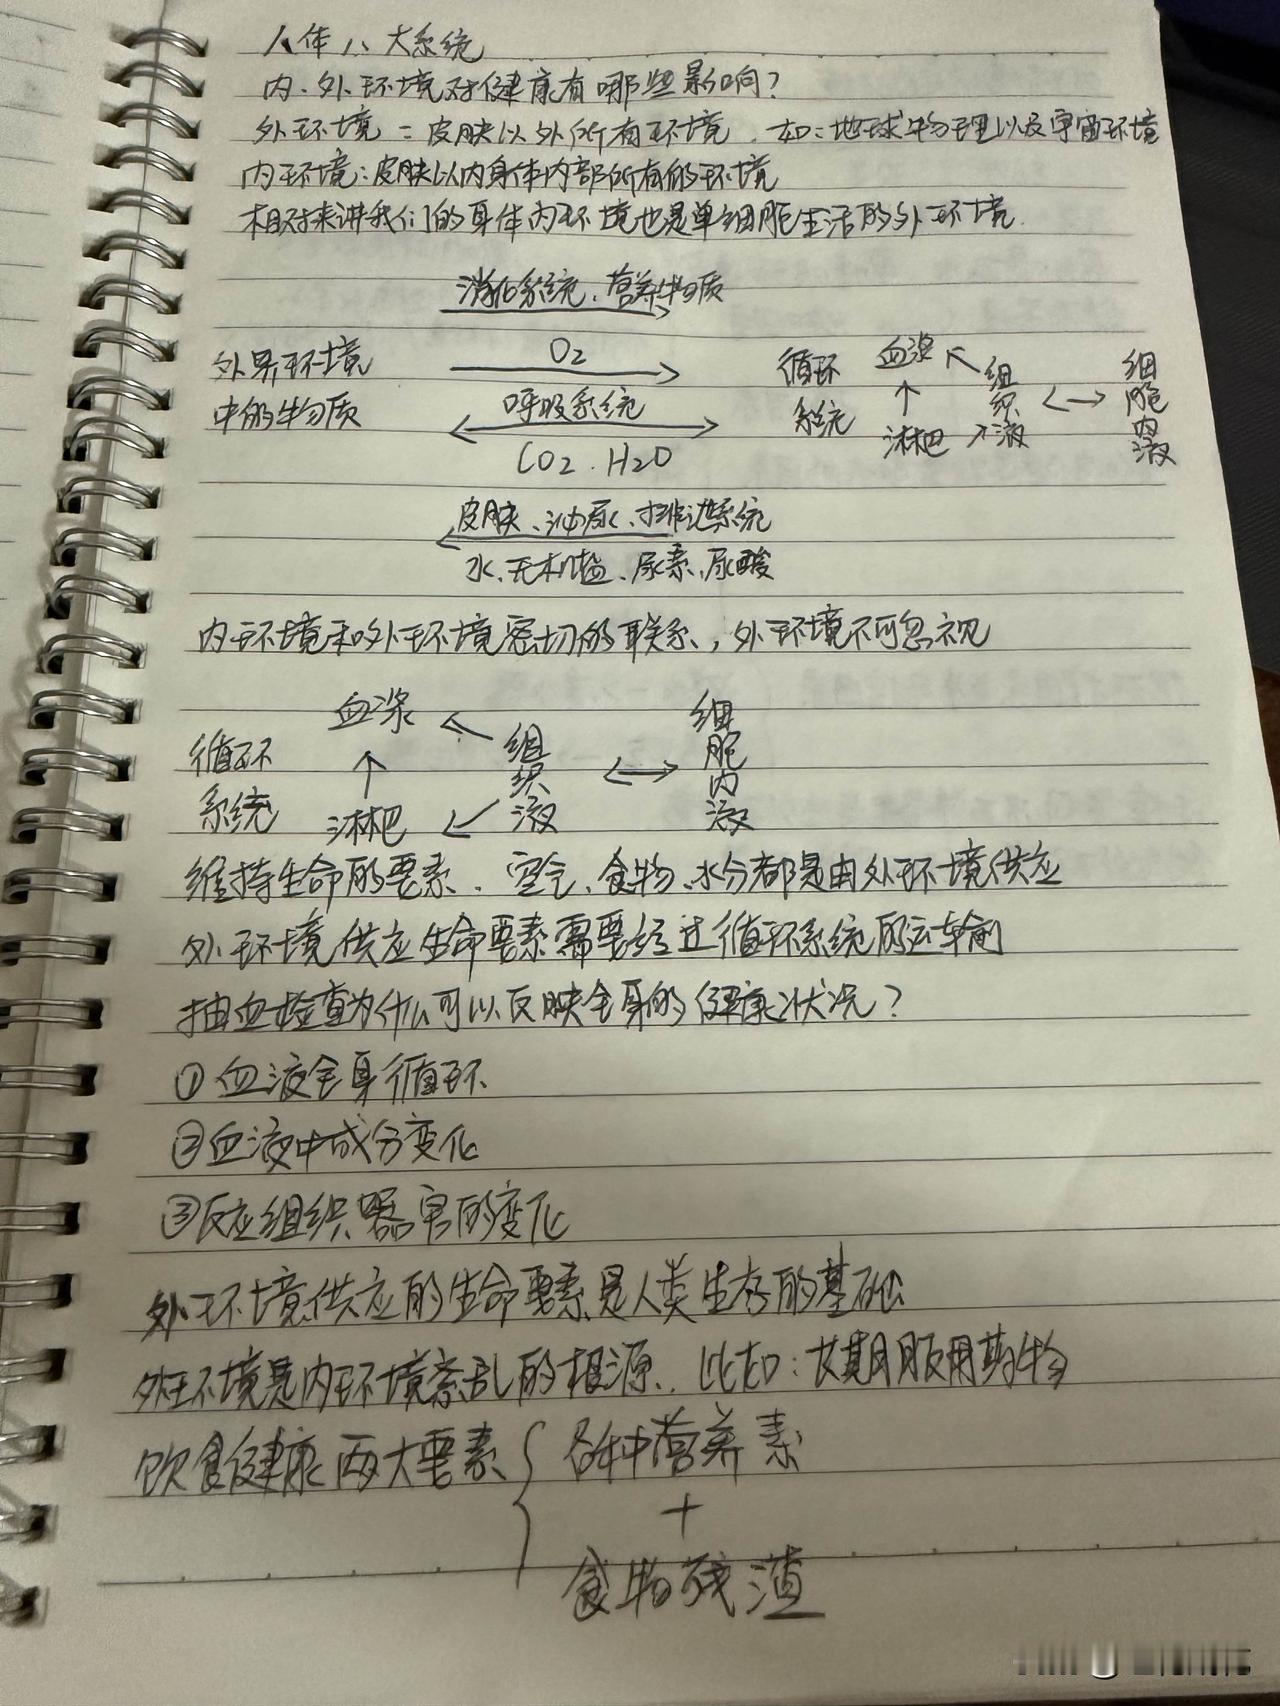 人体八大系统
内、外环境对健康有哪些影响?
外环境:皮肤以外所有环境,如:地球生物理以及宇宙环境
内环境:皮肤以内身体内部所有的环境
相对来讲我们的身体内环境也是单细胞生活的外环境.
消化系统、营养物质
外界环境
中的物质
O₂
呼吸系统
CO₂.H₂O
循环
系统
血浆
淋巴
组织液
细胞内液
皮肤、泌尿、排泄系统
水、无机盐、尿素、尿酸
内环境和外环境密切的联系,外环境不可忽视
循环
系统
血浆
淋巴
组织液
细胞内液
维持生命的要素、空气、食物、水分都是由外环境供应
外环境供应生命要素需要经过循环系统的运输
抽血检查为什么可以反映全身的健康状况?
①血液全身循环
②血液中成分变化
③反应组织器官的变化
外环境供应的生命要素是人类生存的基础
外环境是内环境紊乱的根源,比如:长期服用药物
饮食健康两大要素{各种营养素
+
食物残渣